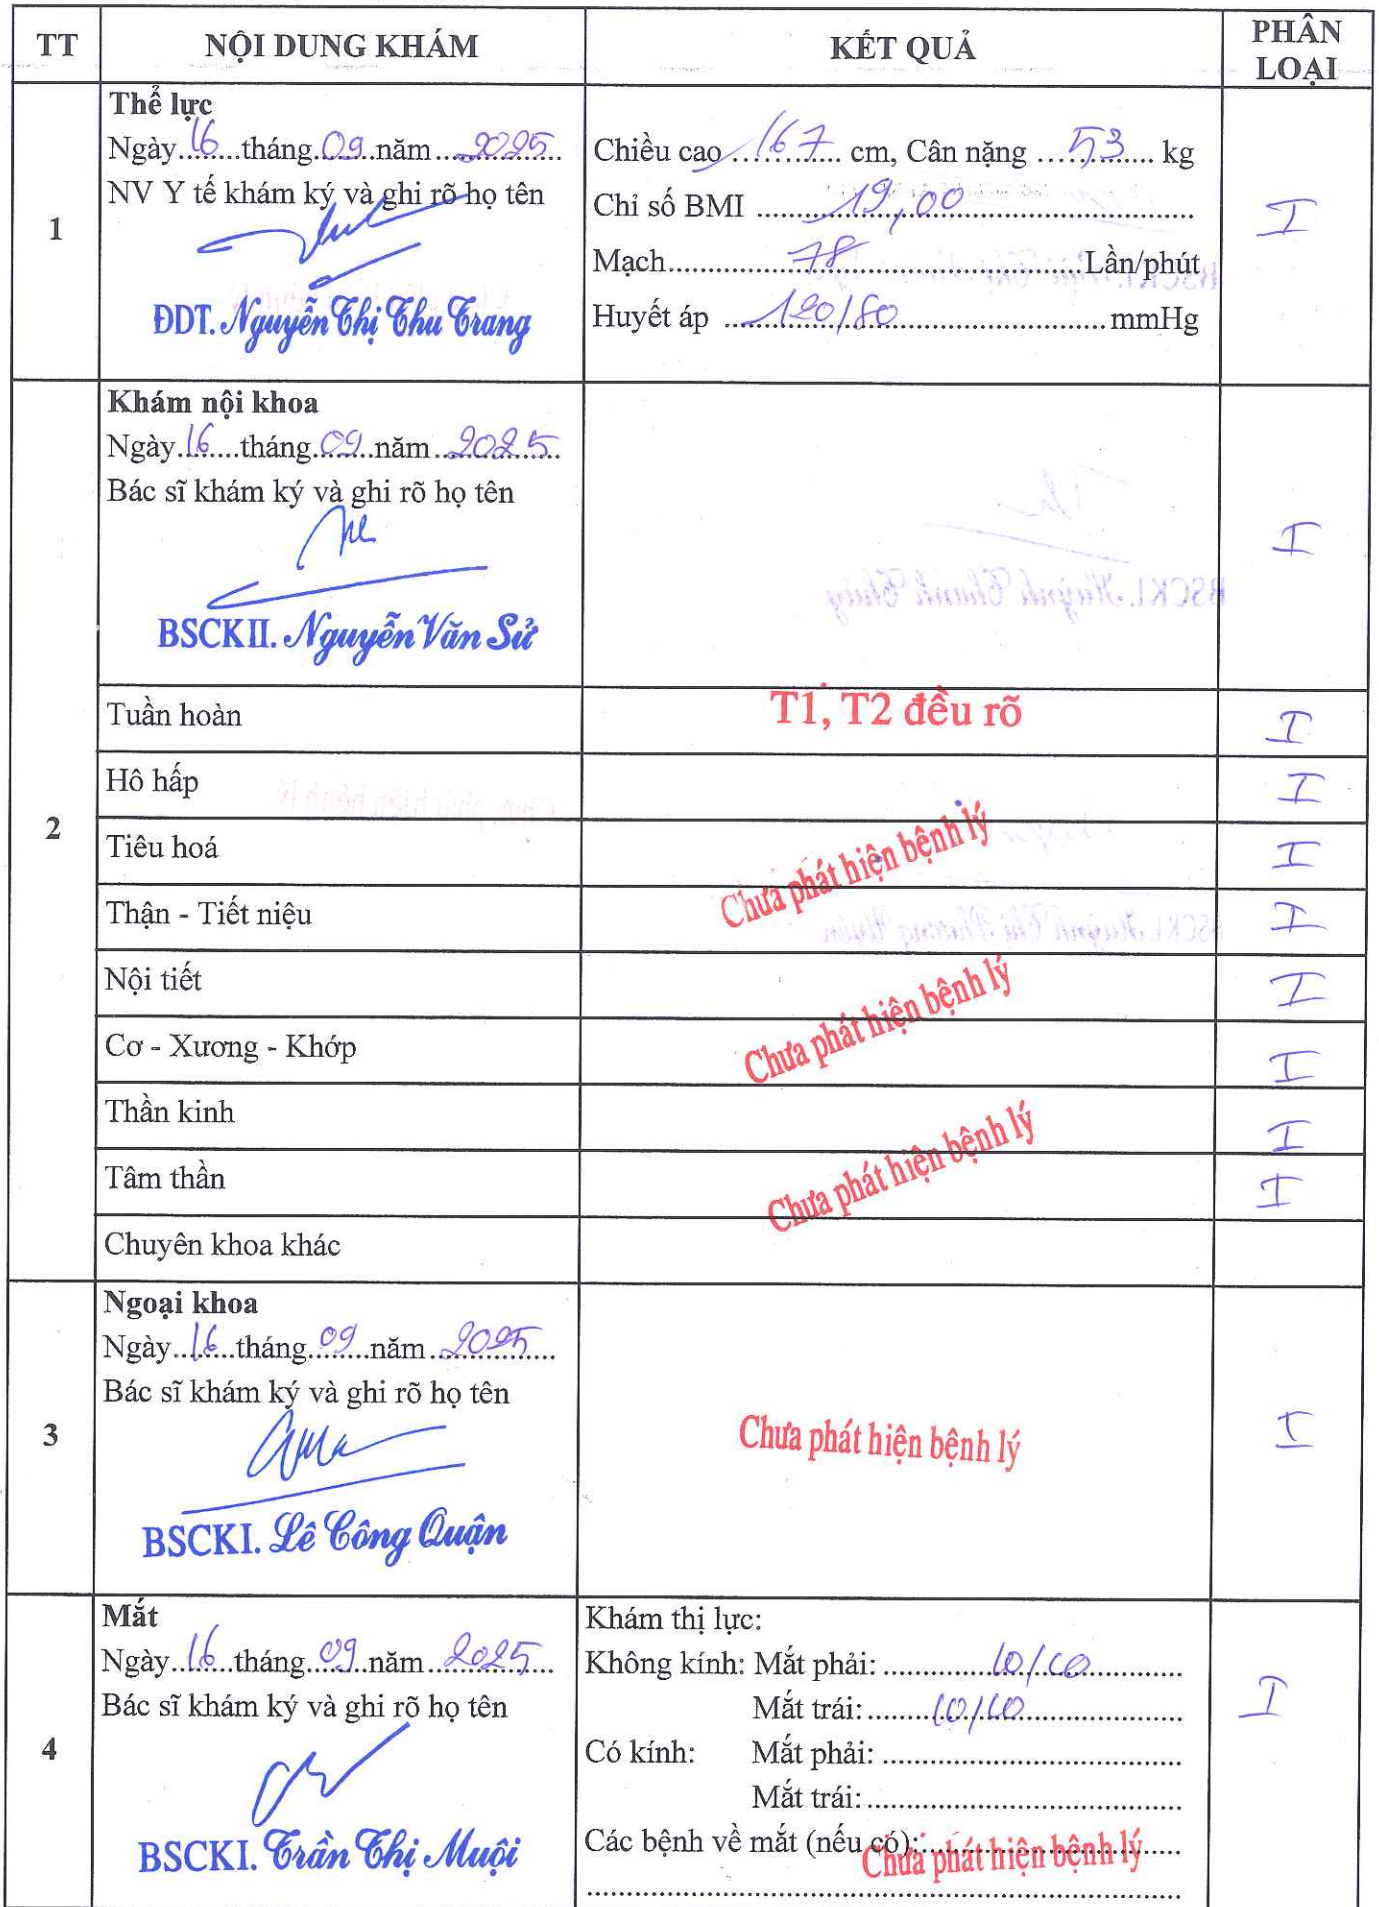 TT NỘI DUNG KHÁM KẾT QUẢ PHÂN LOẠI
1
Thể lực
Ngày 16 tháng 09 năm 2025
NV Y tế khám ký và ghi rõ họ tên
ĐDT. Nguyễn Thị Thu Trang
Chiều cao 167 cm, Cân nặng 53 kg
Chỉ số BMI 19,00
Mạch 78 Lần/phút
Huyết áp 120/80 mmHg
I
2
Khám nội khoa
Ngày 16 tháng 09 năm 2025
Bác sĩ khám ký và ghi rõ họ tên
BSCKII. Nguyễn Văn Sử
I
Tuần hoàn T1, T2 đều rõ I
Hô hấp I
Chưa phát hiện bệnh lý
Tiêu hoá I
Thận - Tiết niệu I
Nội tiết I
Chưa phát hiện bệnh lý
Cơ - Xương - Khớp I
Thần kinh I
Chưa phát hiện bệnh lý
Tâm thần I
Chuyên khoa khác
3
Ngoại khoa
Ngày 16 tháng 09 năm 2025
Bác sĩ khám ký và ghi rõ họ tên
BSCKI. Lê Công Quận
Chưa phát hiện bệnh lý
I
4
Mắt
Ngày 16 tháng 09 năm 2025
Bác sĩ khám ký và ghi rõ họ tên
BSCKI. Trần Thị Muội
Khám thị lực:
Không kính: Mắt phải: 10/10
Mắt trái: 10/10
Có kính: Mắt phải:
Mắt trái:
Các bệnh về mắt (nếu có): Chưa phát hiện bệnh lý
I